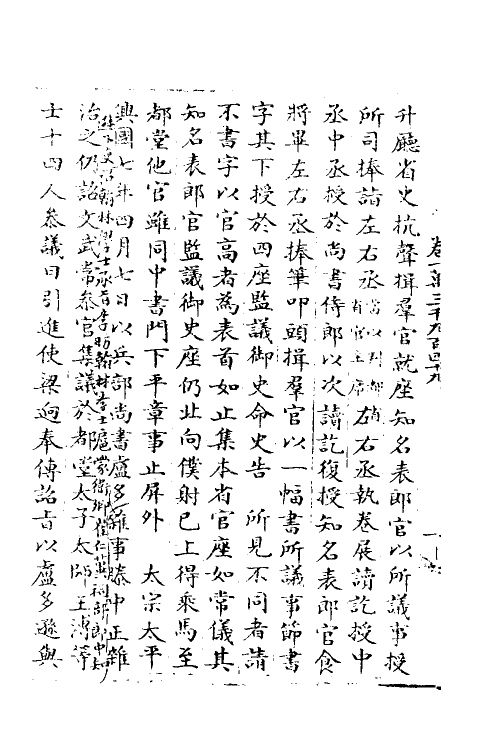 卷一萬三千九百四十九
升廳省史抗聲揖羣官就座知名表郎官以所議事授
所司捧詣左右丞左右丞執卷展讀訖授中
丞中丞授於尚書侍郎以次讀訖復授知名表郎官食
將畢左右丞捧筆叩頭揖羣官以一幅書所議事節書
字其下授於四座監議御史命史告 所見不同者請
不書字以官高者為表首如止集本省官座如常儀其
知名表郎官監議御史座仍北向僕射已上得乘馬至
都堂他官雖同中書門下平章事止屏外 太宗太平
興國七年四月七日以兵部尚書盧多遜事
治之仍詔文武常參官集議於都堂太子太師王溥等
士十四人參議曰引進使梁迥奉傳詔旨以盧多遜與